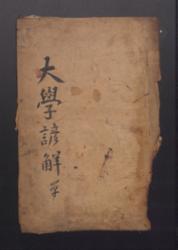 大學諺解